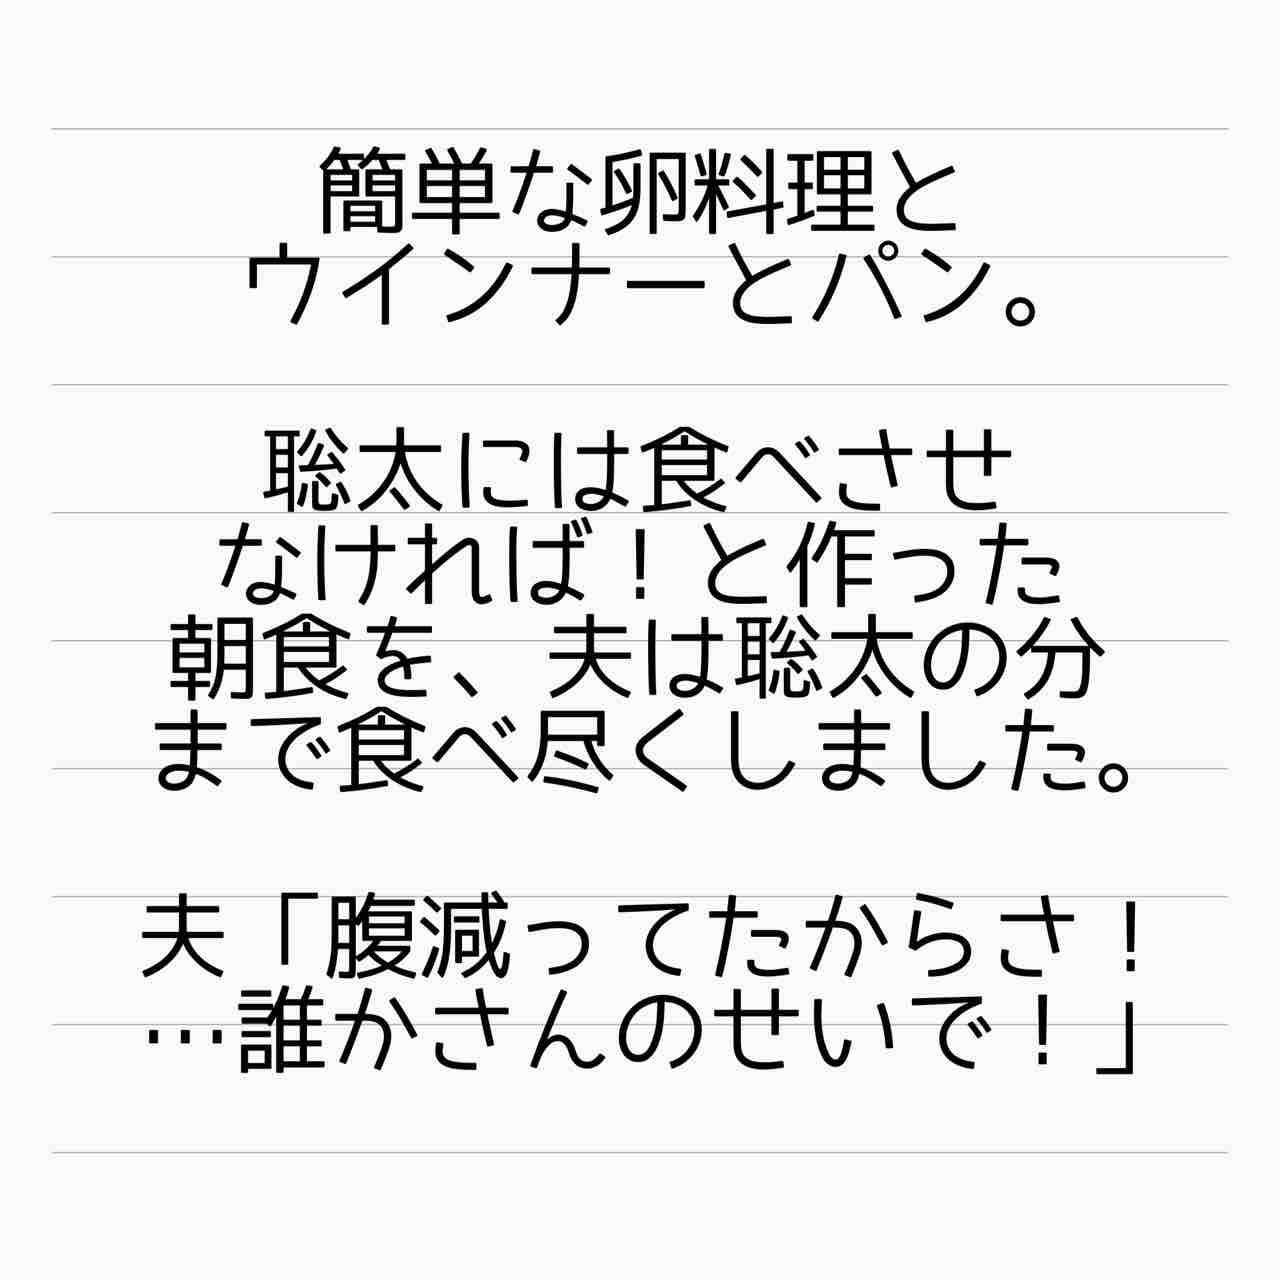 簡単な卵料理と
ウインナーとパン。
聡太には食べさせ
なければ！と作った
朝食を、夫は聡太の分
まで食べ尽くしました。
夫「腹減ってたからさ！
…誰かさんのせいで！」